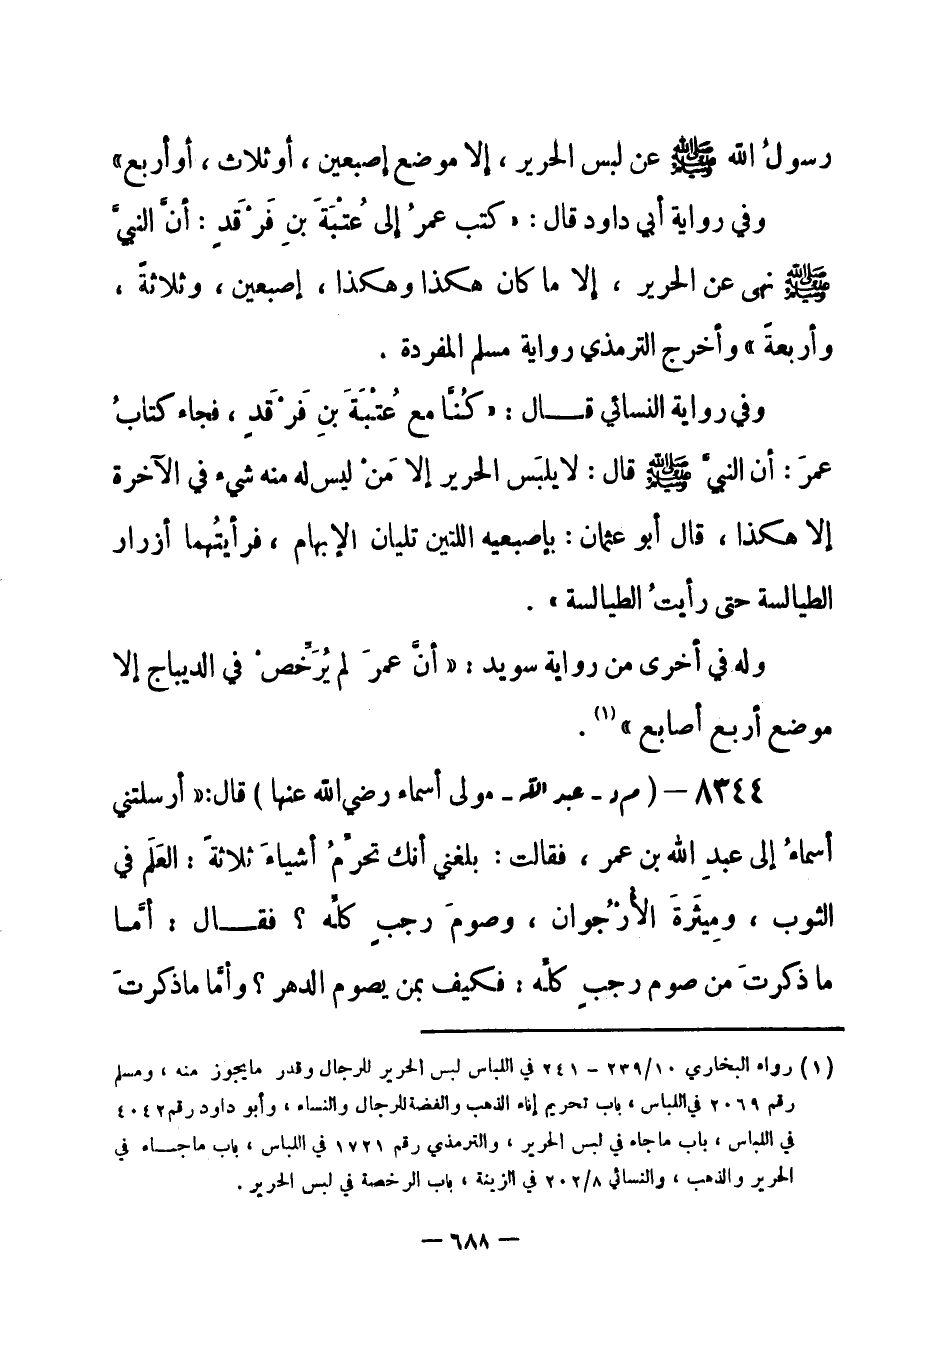 رسولُ الله ﷺ عن لبس الحرير ، إلا موضع إصبعين ، أو ثلاث ، أو أربع»
وفي رواية أبي داود قال : « كتب عمرُ إلى عُتْبَةَ بنِ فَرْقَدٍ : أنَّ النبيَّ
ﷺ نهى عن الحرير ، إلا ما كان هكذا وهكذا ، إصبعين ، وثلاثةً ،
وأربعةً » وأخرج الترمذي رواية مسلم المفردة .
وفي رواية النسائي قـــال : « كُنَّا مع عُتْبَةَ بنِ فَرْقَدٍ ، فجاء كتابُ
عمرَ : أن النبيَّ ﷺ قال : لا يلبَس الحرير إلا مَنْ ليس له منه شيء في الآخرة
إلا هكذا ، قال أبو عثمان : بإصبعيه اللتين تليان الإبهام ، فرأيتُهما أزرار
الطيالسة حتى رأيتُ الطيالسة » .
وله في أخرى من رواية سويد : « أنَّ عمرَ لم يُرَخِّصْ في الديباج إلا
موضع أربع أصابع »(١) .
٨٣٤٤ – ( م د ـ عبد الله ـ مولى أسماء رضي الله عنها ) قال:« أرسلتني
أسماءُ إلى عبدِ الله بن عمر ، فقالت : بلغني أنك تحرِّمُ أشياءَ ثلاثةً : العَلَم في
الثوب ، ومِيثَرةَ الأُرْجُوان ، وصومَ رجبٍ كلِّه ؟ فقـــال : أمَّــا
ما ذكرتَ من صوم رجبٍ كلِّه : فكيف بمن يصوم الدهر ؟ وأمَّا ما ذكرتَ
(١) رواه البخاري ١٠/ ٢٣٩ – ٢٤١ في اللباس لبس الحرير للرجال وقدر مايجوز منه ، ومسلم
رقم ٢٠٦٩ في اللباس ، باب تحريم إناء الذهب والفضة للرجال والنساء ، وأبو داود رقم ٤٠٤٢
في اللباس ، باب ماجاء في لبس الحرير ، والترمذي رقم ١٧٢١ في اللباس ، باب ماجـــاء في
الحرير والذهب ، والنسائي ٨/ ٢٠٢ في الزينة ، باب الرخصة في لبس الحرير .
— ٦٨٨ —